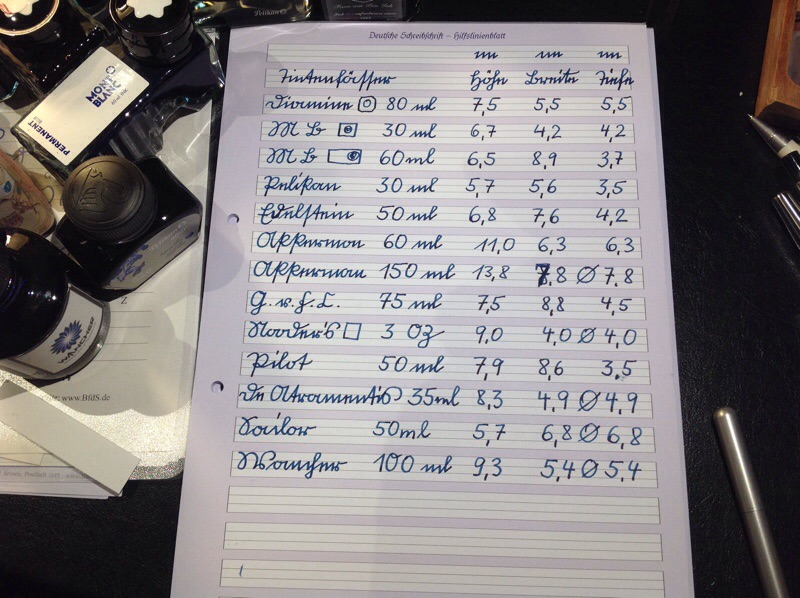 Pelikan
MONT
BLANC
PERMANENT
WANCHER
www.BfdS.de
Deutsche Schreibschrift – Hilfslinienblatt
Tintenfässer Höhe Breite Tiefe
Diamine 80 ml 7,5 5,5 5,5
MB 30 ml 6,7 4,2 4,2
MB 60ml 6,5 8,9 3,7
Pelikan 30 ml 5,7 5,6 3,5
Edelstein 50 ml 6,8 7,6 4,2
Akkerman 60 ml 11,0 6,3 6,3
Akkerman 150 ml 13,8 7,8 Ø 7,8
G.v.F.C. 75 ml 7,5 8,8 4,5
Nooder's 3 OZ 9,0 4,0 Ø 4,0
Pilot 50 ml 7,9 8,6 3,5
De Atramentis 35ml 8,3 4,9 Ø 4,9
Sailor 50ml 5,7 6,8 Ø 6,8
Wancher 100 ml 9,3 5,4 Ø 5,4